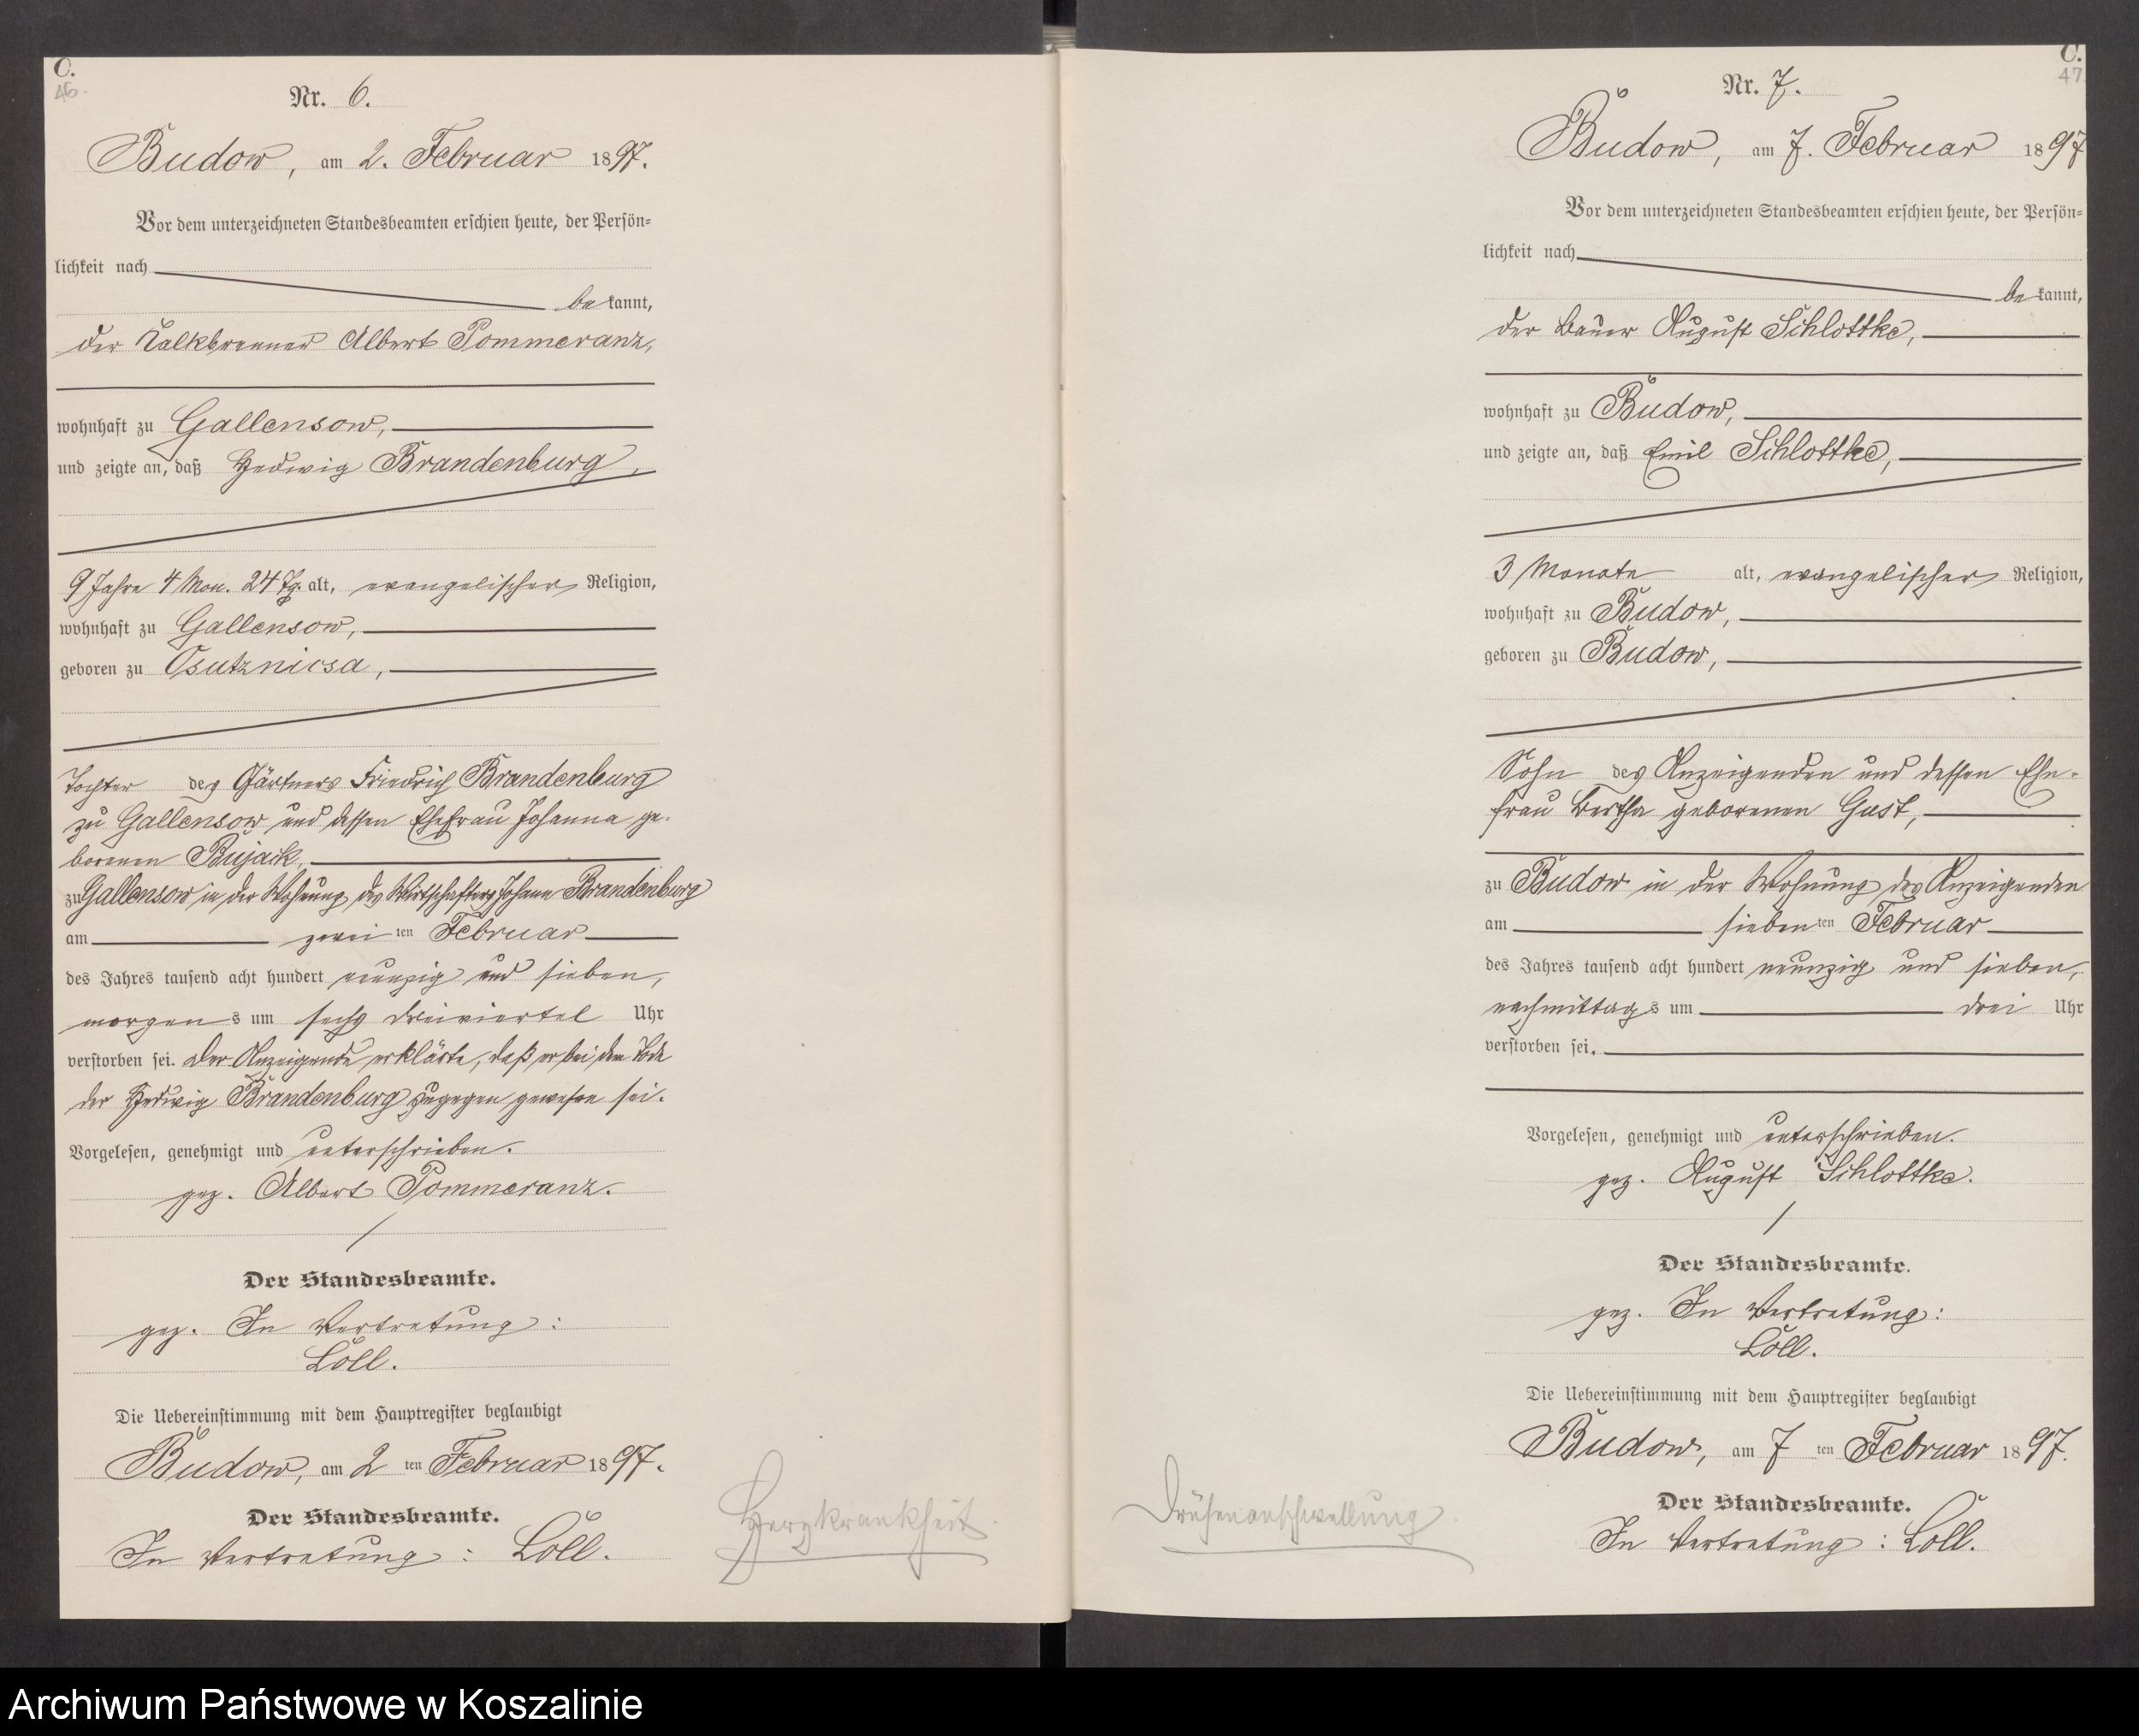 C.
46.
Nr. 6.
Budow, am 2. Februar 1897.
Vor dem unterzeichneten Standesbeamten erschien heute, der Persön-
lichkeit nach
be kannt,
der Kalkbrenner Albert Pommeranz,
wohnhaft zu Gallensow,
und zeigte an, daß Hedwig Brandenburg,
9 Jahre 4 Mon. 24 Tg. alt, evangelischer Religion,
wohnhaft zu Gallensow,
geboren zu Csutznicsa,
Tochter des Gärtners Friedrich Brandenburg
zu Gallensow und dessen Ehefrau Johanna ge-
borenen Bujack,
zu Gallensow in der Wohnung des Wirtschafters Johann Brandenburg
am zwei ten Februar
des Jahres tausend acht hundert neunzig und sieben,
morgen s um sechs dreiviertel Uhr
verstorben sei. Der Anzeigende erklärte, daß er bei dem Tode
der Hedwig Brandenburg zugegen gewesen sei.
Vorgelesen, genehmigt und unterschrieben.
gez. Albert Pommeranz.
Der Standesbeamte.
gez. In Vertretung:
Löll.
Die Uebereinstimmung mit dem Hauptregister beglaubigt
Budow, am 2 ten Februar 1897.
Der Standesbeamte.
In Vertretung: Löll.
Herzkrankheit.
C.
47
Nr. 7.
Budow, am 7. Februar 1897
Vor dem unterzeichneten Standesbeamten erschien heute, der Persön-
lichkeit nach
be kannt,
der Bauer August Schlottke,
wohnhaft zu Budow,
und zeigte an, daß Emil Schlottke,
3 Monate alt, evangelischer Religion,
wohnhaft zu Budow,
geboren zu Budow,
Sohn des Anzeigenden und dessen Ehe-
frau Bertha geborenen Gust,
zu Budow in der Wohnung des Anzeigenden
am sieben ten Februar
des Jahres tausend acht hundert neunzig und sieben,
nachmittag s um drei Uhr
verstorben sei.
Vorgelesen, genehmigt und unterschrieben.
gez. August Schlottke.
Der Standesbeamte.
gez. In Vertretung:
Löll.
Die Uebereinstimmung mit dem Hauptregister beglaubigt
Budow, am 7 ten Februar 1897.
Der Standesbeamte.
In Vertretung: Löll.
Drüsenanschwellung.
Archiwum Państwowe w Koszalinie